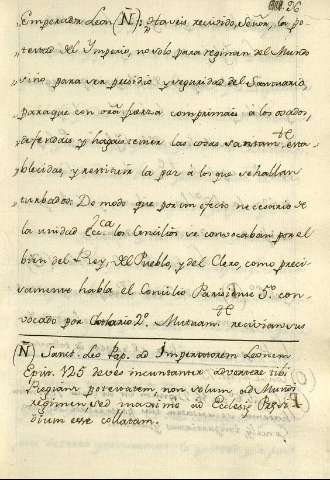 26
Emperador Leon (Ñ): Haveis recivido, Señor, la po-
„ testad del Ymperio, no solo para regimen del Mundo
„ sino para ser presidio y seguridad del Santuario,
para que con vra fuerza comprimais à los osados,
„ defendais y hagais temer las cosas santam.te esta-
„ blecidas, y restituir la paz à los que se hallan
„ turbados: De modo que por un efecto necesario de
la unidad Ec.ca los Concilios se convocaban por el
bien del Rey, del Pueblo, y del Clero, como preci-
samente habla el Concilio Parisiense 5.º con-
vocado por Clotario 2.º Mutuam.te recivian sus
(Ñ) Sanct. Leo Pap. ad Imperatorem Leonem
Epist. 125 deves incuntanter advertere tibi
Regiam potestatem non solum ad Mundi
regimen, sed maxime ad Ecclesiæ Præsi-
dium esse collatam.